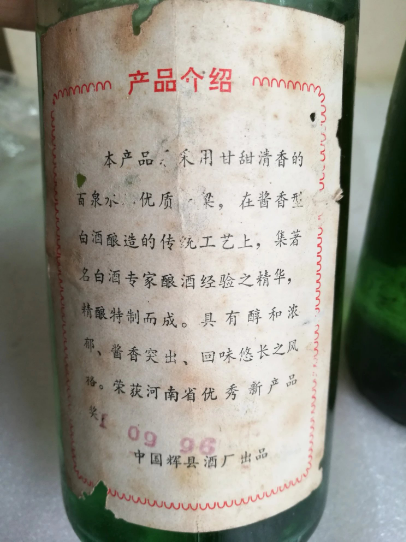 产品介绍
本产品采用甘甜清香的
百泉水优质粱,在酱香型
白酒酿造的传统工艺上,集著
名白酒专家酿酒经验之精华,
精酿特制而成。具有醇和浓
郁、酱香突出、回味悠长之风
格。荣获河南省优秀新产品
奖
09 96
中国辉县酒厂出品